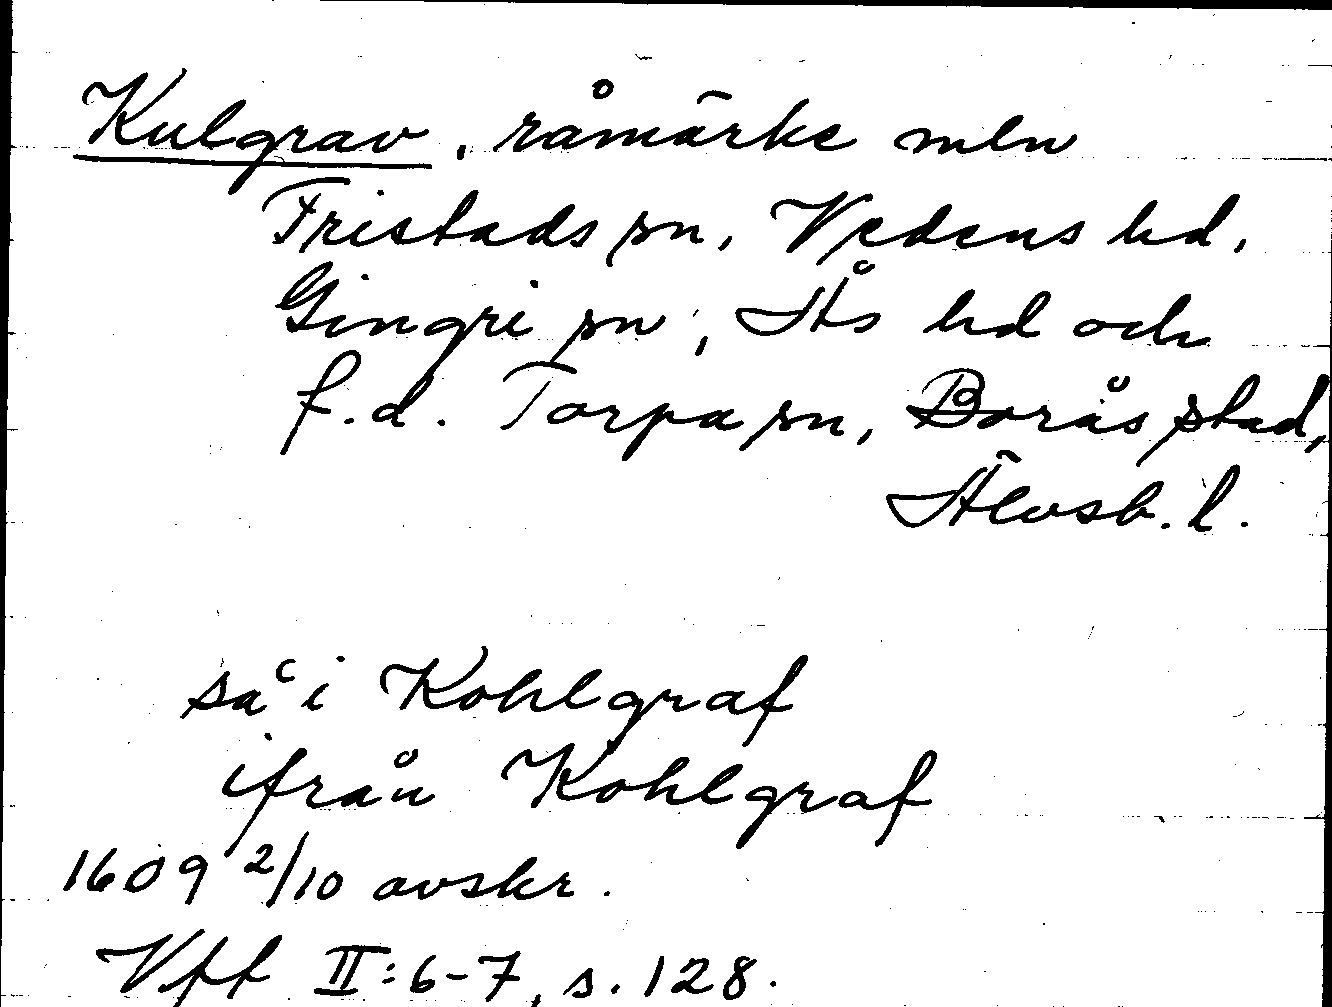 Kulgrav, råmärke mln
Fristads sn, Vedens hd,
Gingri sn, Ås hd och
f.d. Torpa sn, Borås stad,
Älvsb. l.
så i Kohlgraf
ifrån Kohlgraf
1609 2/10 avskr.
Vff II:6-7, s. 128.